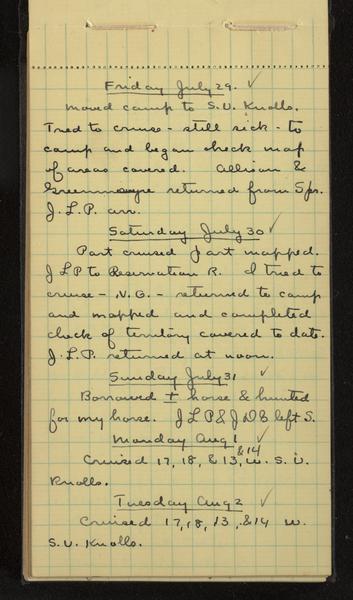 Friday July 29. ✓
Moved camp to S.U. Knolls.
Tried to cruise - still sick - to
camp and began check map
of areas covered. Allison &
Greenamyre returned from Spr.
J.L.P. arr.
Saturday July 30 ✓
Part cruised part mapped.
JLP to Reservation R. I tried to
cruise - N.G. - returned to camp
and mapped and completed
check of territory covered to date.
J.L.P. returned at noon.
Sunday July 31 ✓
Borrowed I horse & hunted
for my horse. JLP & JDB left S.
Monday Aug 1 ✓
Cruised 17, 18, & 13, & 14 w. S.U.
Knolls.
Tuesday Aug 2 ✓
Cruised 17, 18, 13, & 14 w.
S.U. Knolls.